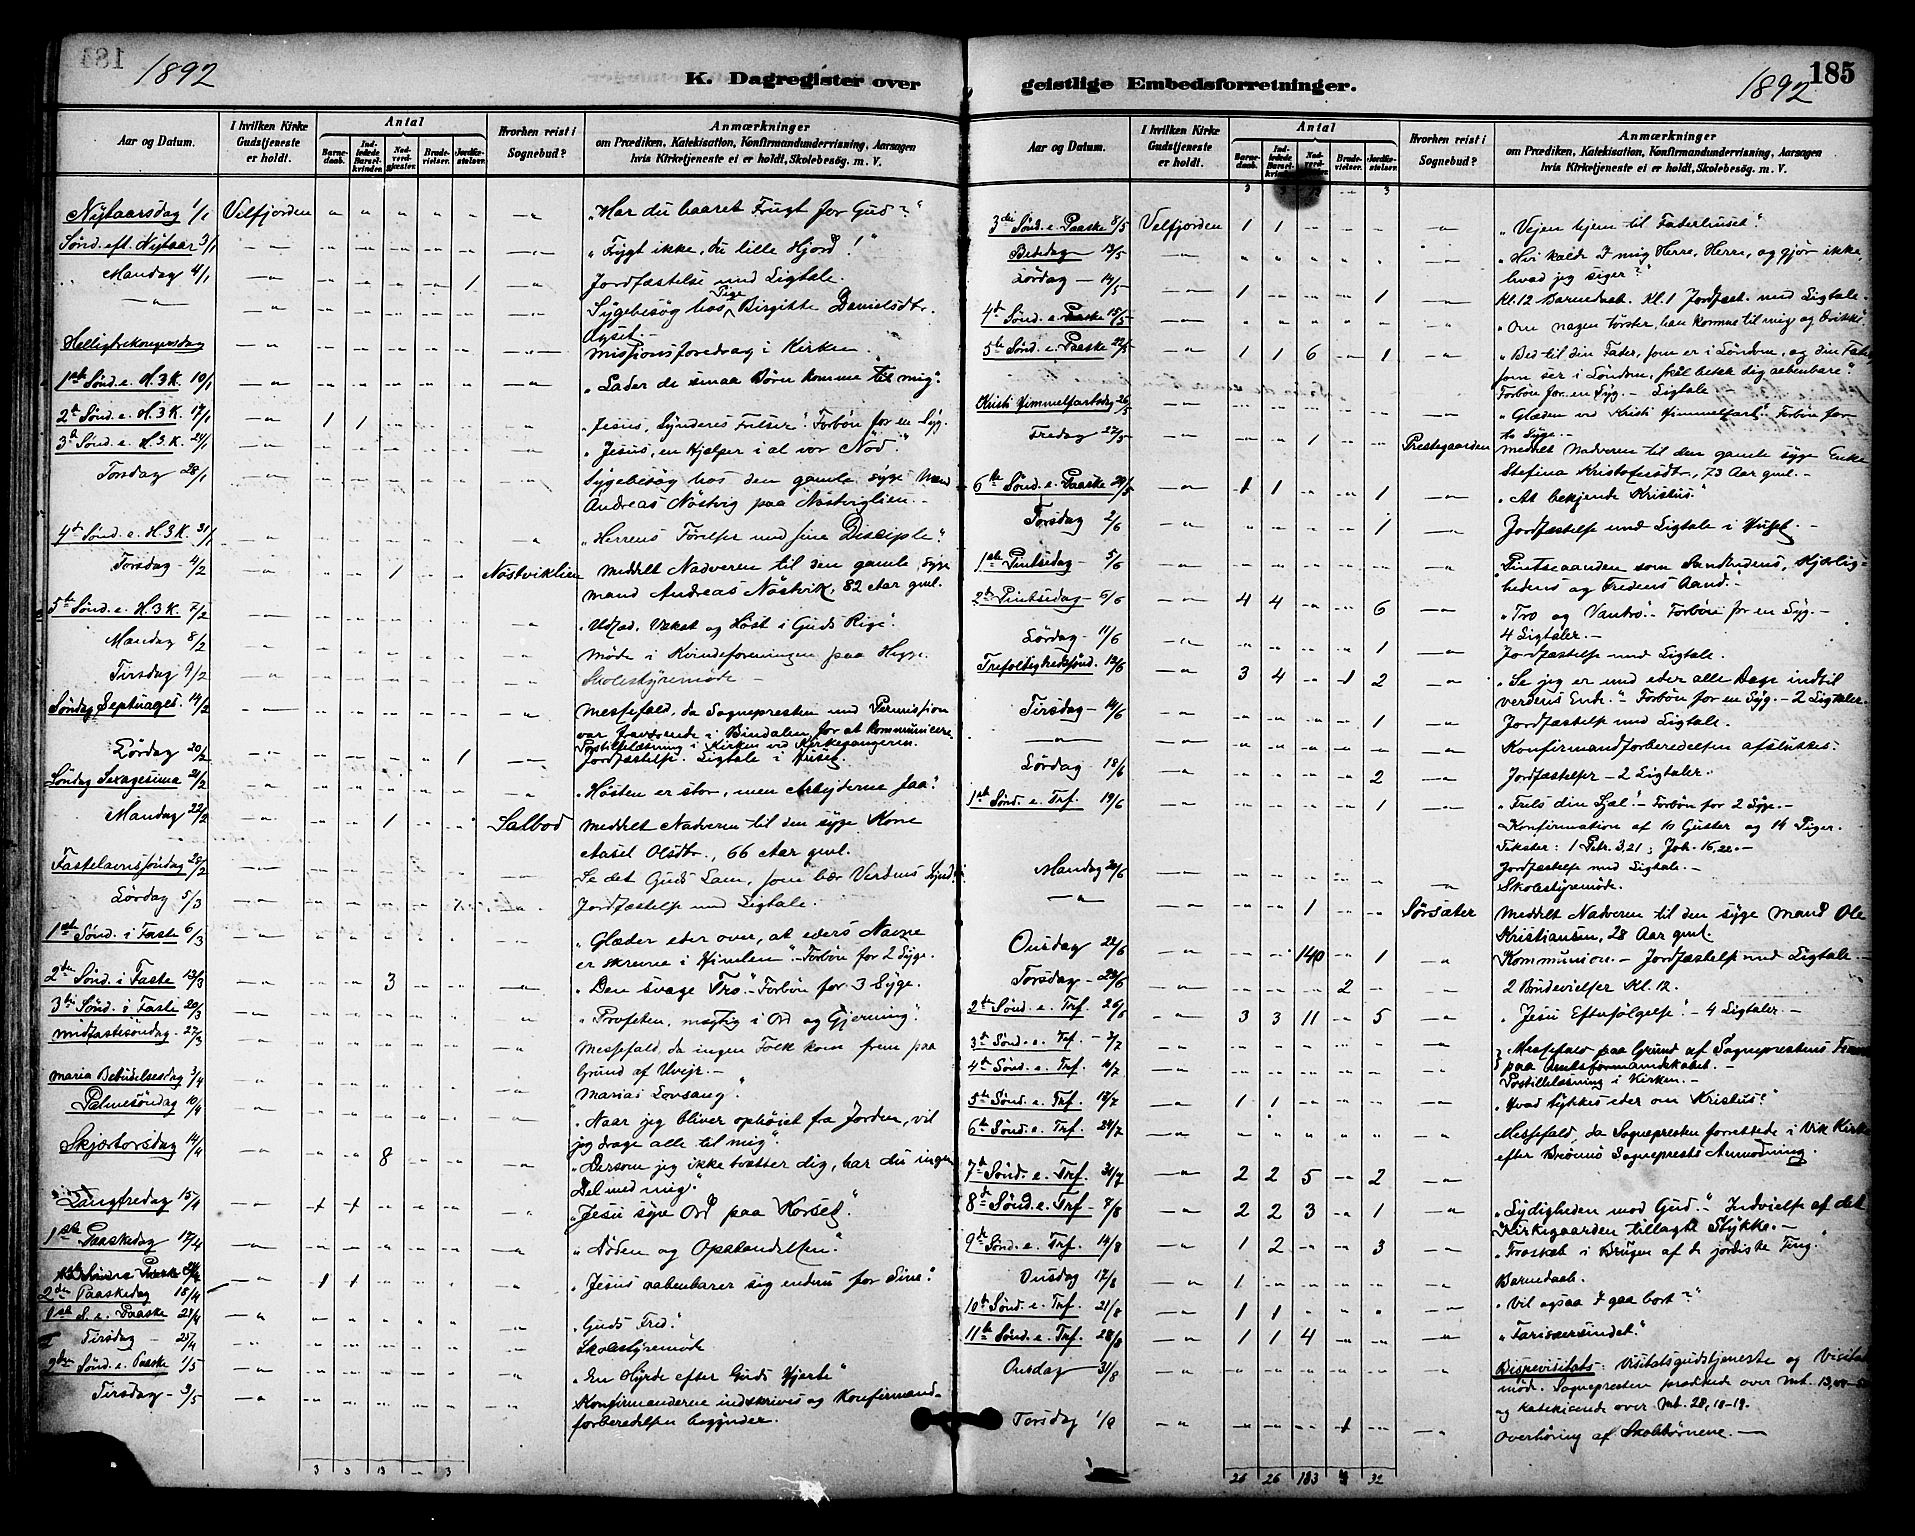 1892
K. Dagregister over
Aar og Datum.
I hvilken Kirke Gudstjeneste er holdt.
Antal
Barnedaab.
Indledede Barselkvinder.
Nadverdgjæster.
Brudevielser.
Jordfæstelser.
Hvorhen reist i Sognebud?
Anmærkninger
om Prædiken, Katekisation, Konfirmandundervisning, Aarsagen
hvis Kirketjeneste ei er holdt, Skolebesög. m. V.
Nytaarsdag 1/1 Velfjorden " " " " " " „Har du baaret Frugt for Gud?"
Sønd. eft. Nytaar 3/1 „Frygt ikke, du lille Hjord!"
Mandag 4/1 1 Jordfæstelse med Ligtale.
Sygebesøg hos Pige Birgitte Danielsdtr.
Helligtrekongersdag Missionsforedrag i Kirken
1ste Sønd. e. H.3.K. 10/1 „Lader de smaa Børn komme til mig".
2de Sønd. e. H.3.K. 17/1 1 1 „Jesus, Synderes Frelser". Forbøn for en Syg.
3die Sønd. e. H.3.K. 24/1 „Jesus, en Hjælper i al vor Nød."
Torsdag 28/1 Sygebesøg hos den gamle syge Mand
Andreas Nöstvig paa Nöstviglien
4de Sønd. e. H.3.K. 31/1 „Herrens Tørelser med sine Disciple."
Torsdag 4/2 1 Nöstviklien Meddelt Nadveren til den gamle syge
Mand Andreas Nöstvik, 82 Aar gml.
5te Sønd. e. H.3.K. 7/2 Vækst og Høst i Guds Rige".
Mandag 8/2 Møde i Kvindeforeningen paa Hegge.
Tirsdag 9/2 Skolestyremøde
Søndag Septuages. 14/2 Messefald, da Sognepresten med Permission
var fraværende i Bindalen for at kommunicere
Postillelæsning i Kirken ved Kirkesangeren.
Lørdag 20/2 1 Jordfæstelse. Ligtale i Huset.
Søndag Sexagesima 21/2 „Høsten er stor, men Arbejderne faa".
Mandag 22/2 1 Salbod Meddelt Nadveren til den syge Kone
Aasel Olsdtr., 66 Aar gml.
Fastelavnssøndag 28/2 Se det Guds Lam, som bær Verdens Synd
Lørdag 5/3 1 Jordfæstelse med Ligtale.
1ste Sønd. i Faste 6/3 „Glæder eder over, at eders Navne
er skrevne i Himlen". Forbøn for 2 Syge.
2den Sønd. i Faste 13/3 3 „Den svage Tro". Forbøn for 3 Syge.
3die Sønd. i Faste 20/3 „Profeten, mægtig i Ord og Gjerning".
Midfastesøndag 27/3 Messefald, da ingen Folk kom frem paa
Grund af Uvejr.
Maria Bebudelsesdag 3/4 Marias Lovsang".
Palmesøndag 10/4 „Naar jeg bliver ophøiet fra Jorden, vil
jeg drage alle til mig".
Skjærtorsdag 14/4 8 „Dersom jeg ikke tvætter dig, har du ingen
Del med mig".
Langfredag 15/4 „Jesu syv Ord paa Korset".
1ste Paaskedag 17/4 „Døden og Opstandelsen".
2den Paaskedag 18/4 1 1 „Jesus aabenbarer sig endnu for Sine".
1ste S. e. Paaske 24/4 „Guds Fred".
Tirsdag Skolestyremøde
2den Sønd. e. Paaske 1/5 „En Hyrde efter Guds Hjerte"
Tirsdag 3/5 Konfirmanderne indskrives og Konfirmand-
forberedelsen begynder.
3 3 13 " 3
185
1892
geistlige Embedsforretninger.
Aar og Datum.
I hvilken Kirke Gudstjeneste er holdt.
Antal
Barnedaab.
Indledede Barselkvinder.
Nadverdgjæster.
Brudevielser.
Jordfæstelser.
Hvorhen reist i Sognebud?
Anmærkninger
om Prædiken, Katekisation, Konfirmandundervisning, Aarsagen
hvis Kirketjeneste ei er holdt, Skolebesøg. m. V.
3 3 3
3die Sønd. e. Paaske 8/5 Velfjorden 1 1 „Vejen hjem til Faderhuset".
Bededag 13/5 „Hvi kalde I mig Herre, Herre, og gjør ikke,
hvad jeg siger?"
Lørdag 14/5 1 1 Kl. 12 Barnedaab. Kl. 1 Jordfæst. med Ligtale.
4de Sønd. e. Paaske 15/5 „Om nogen tørster, han komme til mig og drikke".
5te Sønd. e. Paaske 22/5 1 1 6 1 „Bed til din Fader, som er i Løndom, og din Fader,
som ser i Løndom, skal betale dig aabenbare".
Forbøn for en Syg. Ligtale
Kristi Himmelfartsdag 26/5 „Glæden ved Kristi Himmelfart". Forbøn for
to Syge.
Fredag 27/5 1 Prestegaarden Meddelt Nadveren til den gamle syge Enke
Stefina Kristofersdtr., 73 Aar gml.
6te Sønd. e. Paaske 29/5 1 1 1 „At bekjende Kristus"
Torsdag 2/6 1 Jordfæstelse med Ligtale i Huset.
1ste Pintsedag 5/6 „Pintseaanden som Sandhedens, Kjærlig-
hedens og Fredens Aand.
2den Pintsedag 6/6 4 4 6 „Tro og Vantro". Forbøn for en Syg.
4 Ligtaler.
Lørdag 11/6 1 Jordfæstelse med Ligtale.
Trefoldighedssønd. 12/6 3 4 1 2 „Se jeg er med eder alle Dage indtil
verdens Ende". Forbøn for en Syg. 2 Ligtaler.
Tirsdag 14/6 1 Jordfæstelse med Ligtale.
Konfirmandforberedelsen afsluttes.
Lørdag 18/6 2 Jordfæstelser 2 Ligtaler.
1ste Sønd. e. Tref. 19/6 1 „Frels din Sjæl". Forbøn for 2 Syge.
Konfirmation af 10 Gutter og 14 Piger.
Tekster: 1 Petr. 3,21; Joh. 16,22.
Jordfæstelse med Ligtale.
Mandag 20/6 Skolestyremøde.
1 Sørsæter Meddelt Nadveren til den syge Mand Ole
Kristiansen, 28 Aar gml.
Onsdag 22/6 140 1 Kommunion. Jordfæstelse med Ligtale
Torsdag 23/6 2 2 Brudevielser Kl. 12.
2den Sønd. e. Tref. 26/6 3 3 11 5 „Jesu Efterfølgelse". 4 Ligtaler.
3die Sønd. e. Tref. 3/7 Messefald paa Grund af Sogneprestens
4de Sønd. e. Tref. 10/7 paa Amtsformandskabet.
Postillelæsning i Kirken.
5te Sønd. e. Tref. 17/7 1 1 „Hvad tykkes eder om Kristus?"
6te Sønd. e. Tref. 24/7 Messefald, da Sognepresten forrettede i Vik Kirke
efter Brønnø Sogneprests Anmodning.
7de Sønd. e. Tref. 31/7 2 2 5 2
8de Sønd. e. Tref. 7/8 2 2 3 1 „Lydigheden mod Gud". Indvielse af det
Kirkegaarden tillagte Stykke.
9de Sønd. e. Tref. 14/8 1 2 3 „Troskab i Brugen af de jordiske Ting"
Onsdag 17/8 1 Barnedaab.
10de Sønd. e. Tref. 21/8 1 1 „Vil ogsaa I gaa bort?"
11te Sønd. e. Tref. 28/8 1 1 4 „Farisæersindet".
Onsdag 31/8 Bispevisitats: Visitatsgudstjeneste og Visitats-
møde. Sognepresten prædikede over Mt. 13,
og katekiserede over Mt. 28, 18-19.
Torsdag 1/9 1 Overhøring af Skolebørnene.
26 26 183 4 32